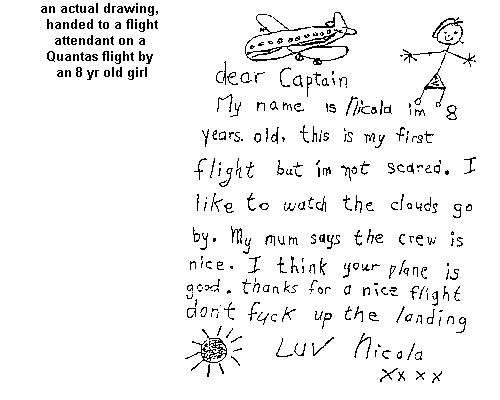 an actual drawing,
handed to a flight
attendant on a
Quantas flight by
an 8 yr old girl
dear Captain
My name is Nicola im 8
years. old, this is my first
flight but im not scared. I
like to watch the clouds go
by. My mum says the crew is
nice. I think your plane is
good. thanks for a nice flight
don't fuck up the landing
LUV Nicola
xxxx